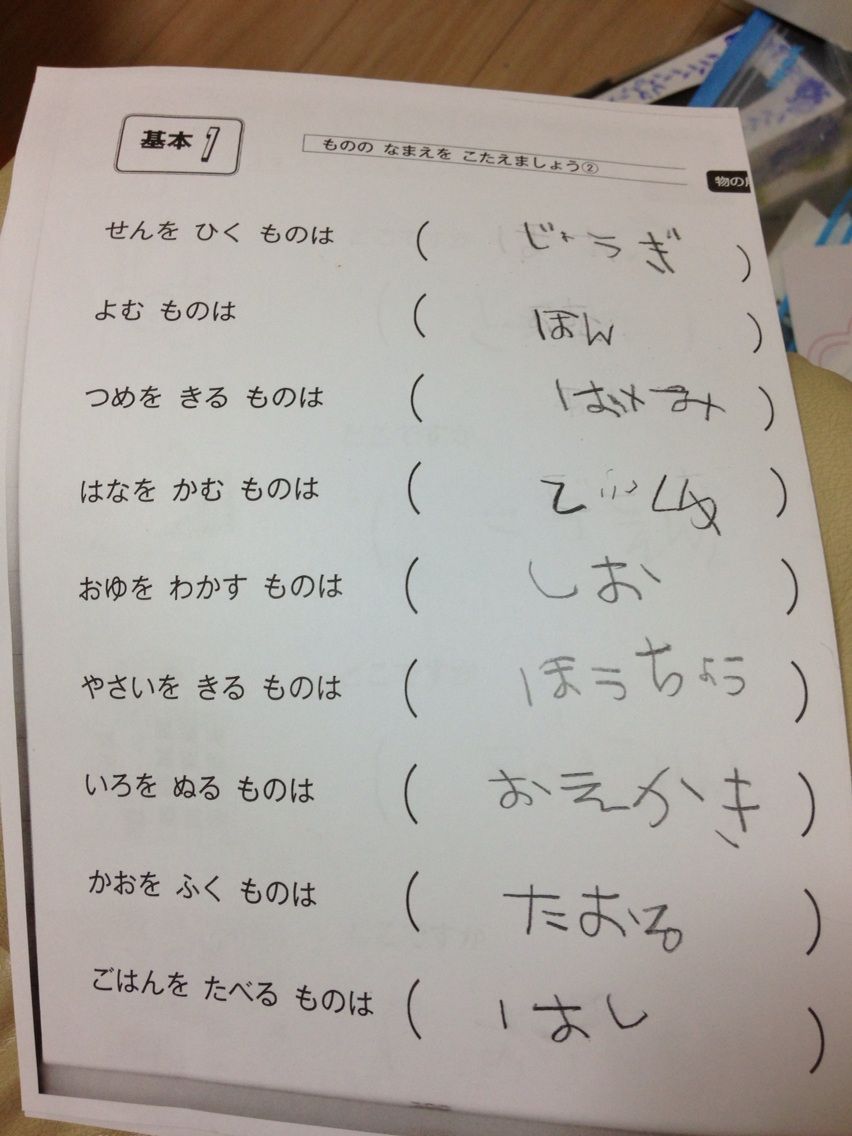 基本1
ものの なまえを こたえましょう②
物の
せんを ひく ものは ( じょうぎ )
よむ ものは ( ほん )
つめを きる ものは ( はさみ )
はなを かむ ものは ( )
おゆを わかす ものは ( しお )
やさいを きる ものは ( ほうちょう )
いろを ぬる ものは ( おえかき )
かおを ふく ものは ( たおる )
ごはんを たべる ものは ( はし )